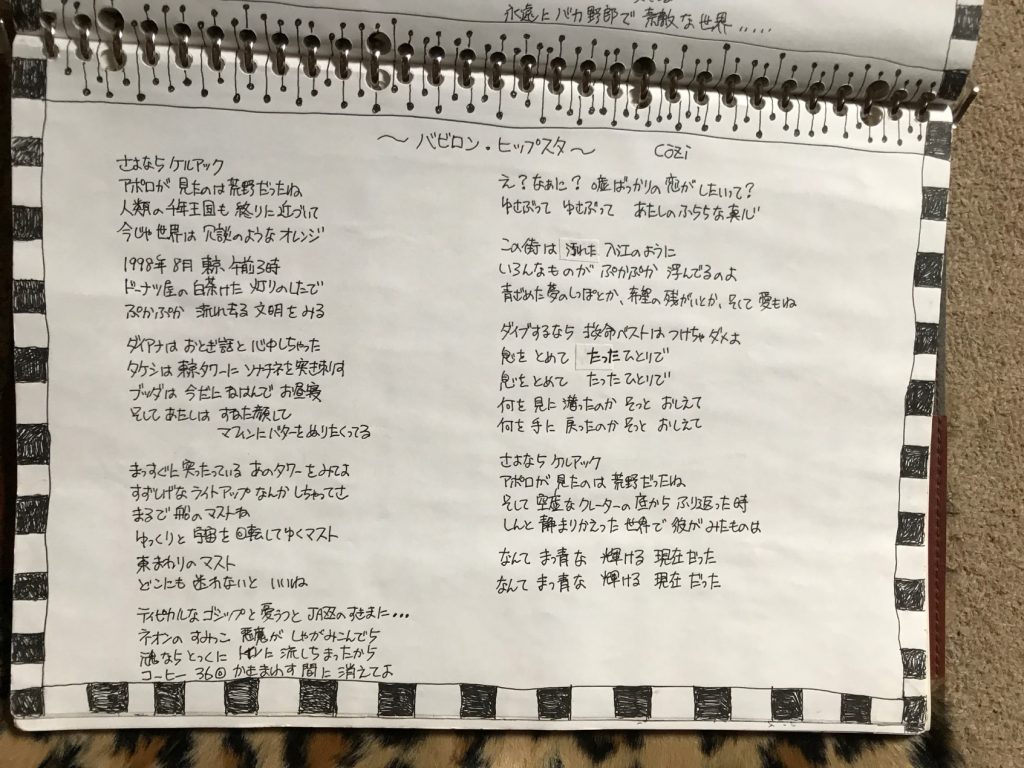 永遠にバカ野郎で 素敵な世界.....
～ バビロン・ヒップスタ ～ cozi
さよなら ケルアック
アポロが 見たのは 荒野だったね
人類の 千年王国も 終りに 近づいて
今じゃ 世界は 冗談のような オレンジ
1998年 8月 東京 午前3時
ドーナツ屋の 白茶けた 灯りのしたで
ぷかぷか 流れ去る 文明を みる
ダイアナは おとぎ話と 心中しちゃった
タケシは 東京タワーに ソナチネを 突き刺す
ブッダは 今だに ねはんで お昼寝
そして あたしは すねた顔して
マフィンに バターを ぬりたくってる
まっすぐに 突ったっている あのタワーを みてよ
すずしげな ライトアップ なんか しちゃってさ
まるで 船の マストね
ゆっくりと 宇宙を 回転してゆく マスト
東まわりの マスト
どこにも 迷れないと いいね
ティピカルな ゴシップと 憂うつと JAZZの すきまに...
ネオンの すみっこ 悪魔が しゃがみこんでら
魂なら とっくに トイレに 流しちまったから
コーヒー 36回 かきまわす 間に 消えてよ
え?なぁに? 嘘ばっかりの 恋が したいって?
ゆさぶって ゆさぶって あたしの ふららな 真心
この街は 汚れた 入江のように
いろんなものが ぷかぷか 浮んでるのよ
青ざめた 夢の しっぽとか、希望の 残がいとか、そして 愛もね
ダイブするなら 救命ベストは つけちゃ ダメよ
息を とめて たった ひとりで
息を とめて たった ひとりで
何を 見に 潜ったのか そっと おしえて
何を 手に 戻ったのか そっと おしえて
さよなら ケルアック
アポロが 見たのは 荒野だったね
そして 空虚な クレーターの 底から ふり返った時
しんと 静まりかえった 世界で 彼が みたものは
なんて まっ青な 輝ける 現在だった
なんて まっ青な 輝ける 現在だった